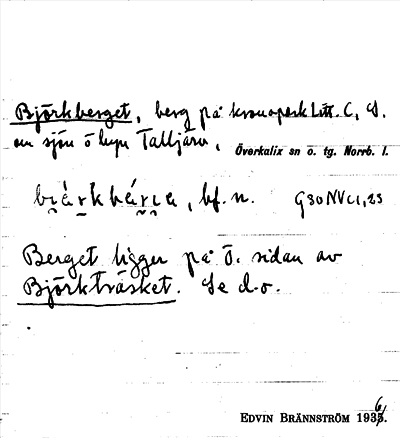 Björkberget, berg på kronopark Litt. C, S.
om sjön o lägn Talljärv, Överkalix sn o. tg. Norrb. l.
bi̯árkbári̯a, bf. n. G30NVc1,23
Berget ligger på ö. sidan av
Björkträsket. Se d.o.
EDVIN BRÄNNSTRÖM 1936.